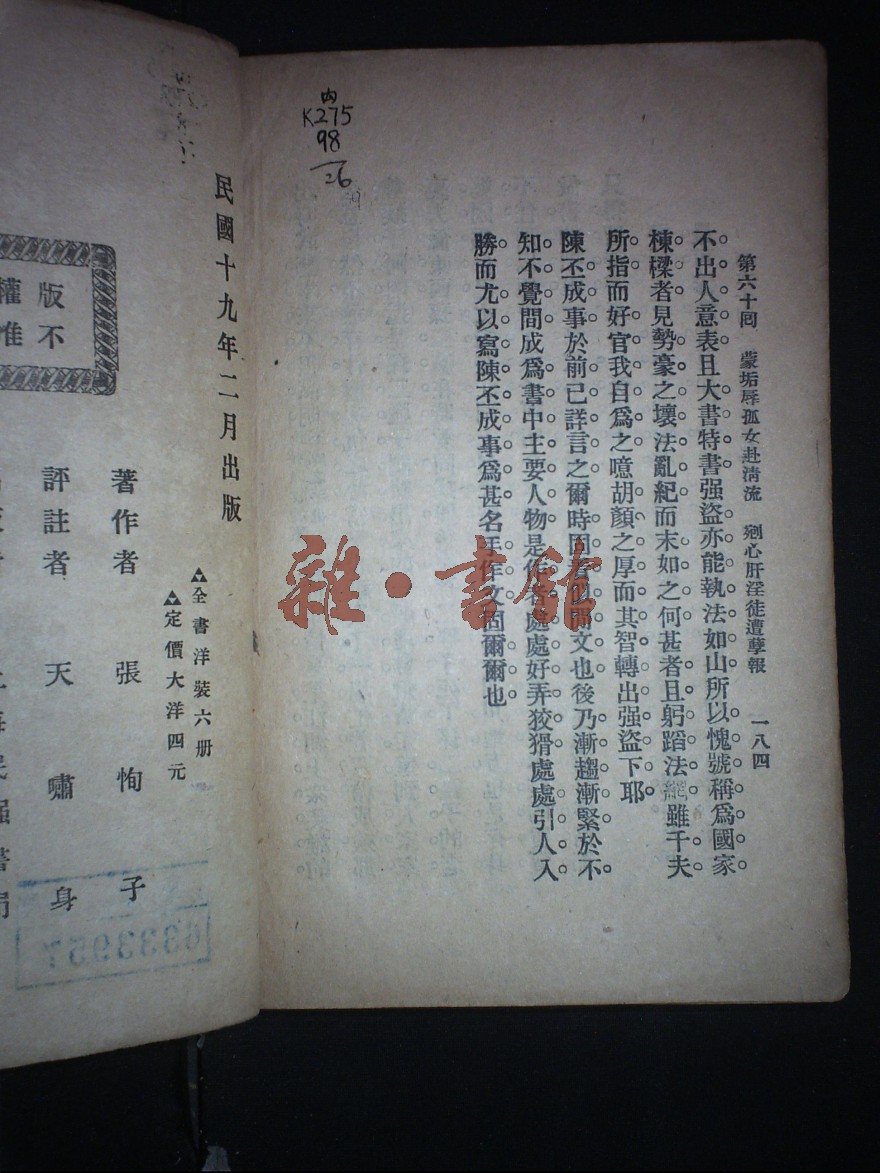 内
K275
98
26
第六十回 蒙垢辱孤女赴清流 剜心肝淫徒遭孽報 一八四
不出人意表且大書特書强盜亦能執法如山所以愧號稱爲國家
棟樑者見勢豪之壞法亂紀而末如之何甚者且躬蹈法網雖千夫
所指而好官我自爲之噫胡顏之厚而其智轉出强盜下耶
陳丕成事於前已詳言之爾時閱者似閒文也後乃漸趨漸緊於不
知不覺間成爲書中主要人物是作者處處好弄狡猾處處引人入
勝而尤以寫陳丕成事爲甚名手作文固爾爾也
雜·書館
民國十九年二月出版
全書洋裝六册
定價大洋四元
著作者 張恂子
評註者 天嘯身
版
不
權
准
6333957